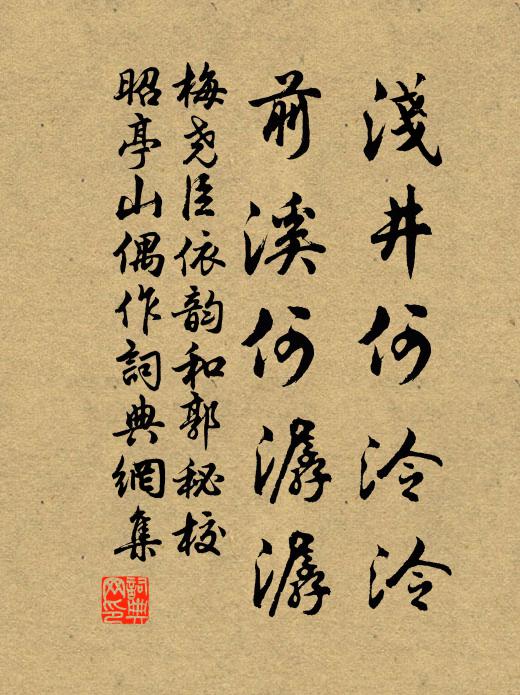 淺井何泠泠
前溪何潺潺
梅尧臣依韵和郭秘校
昭亭山偶作詞典網集
詞典
网印